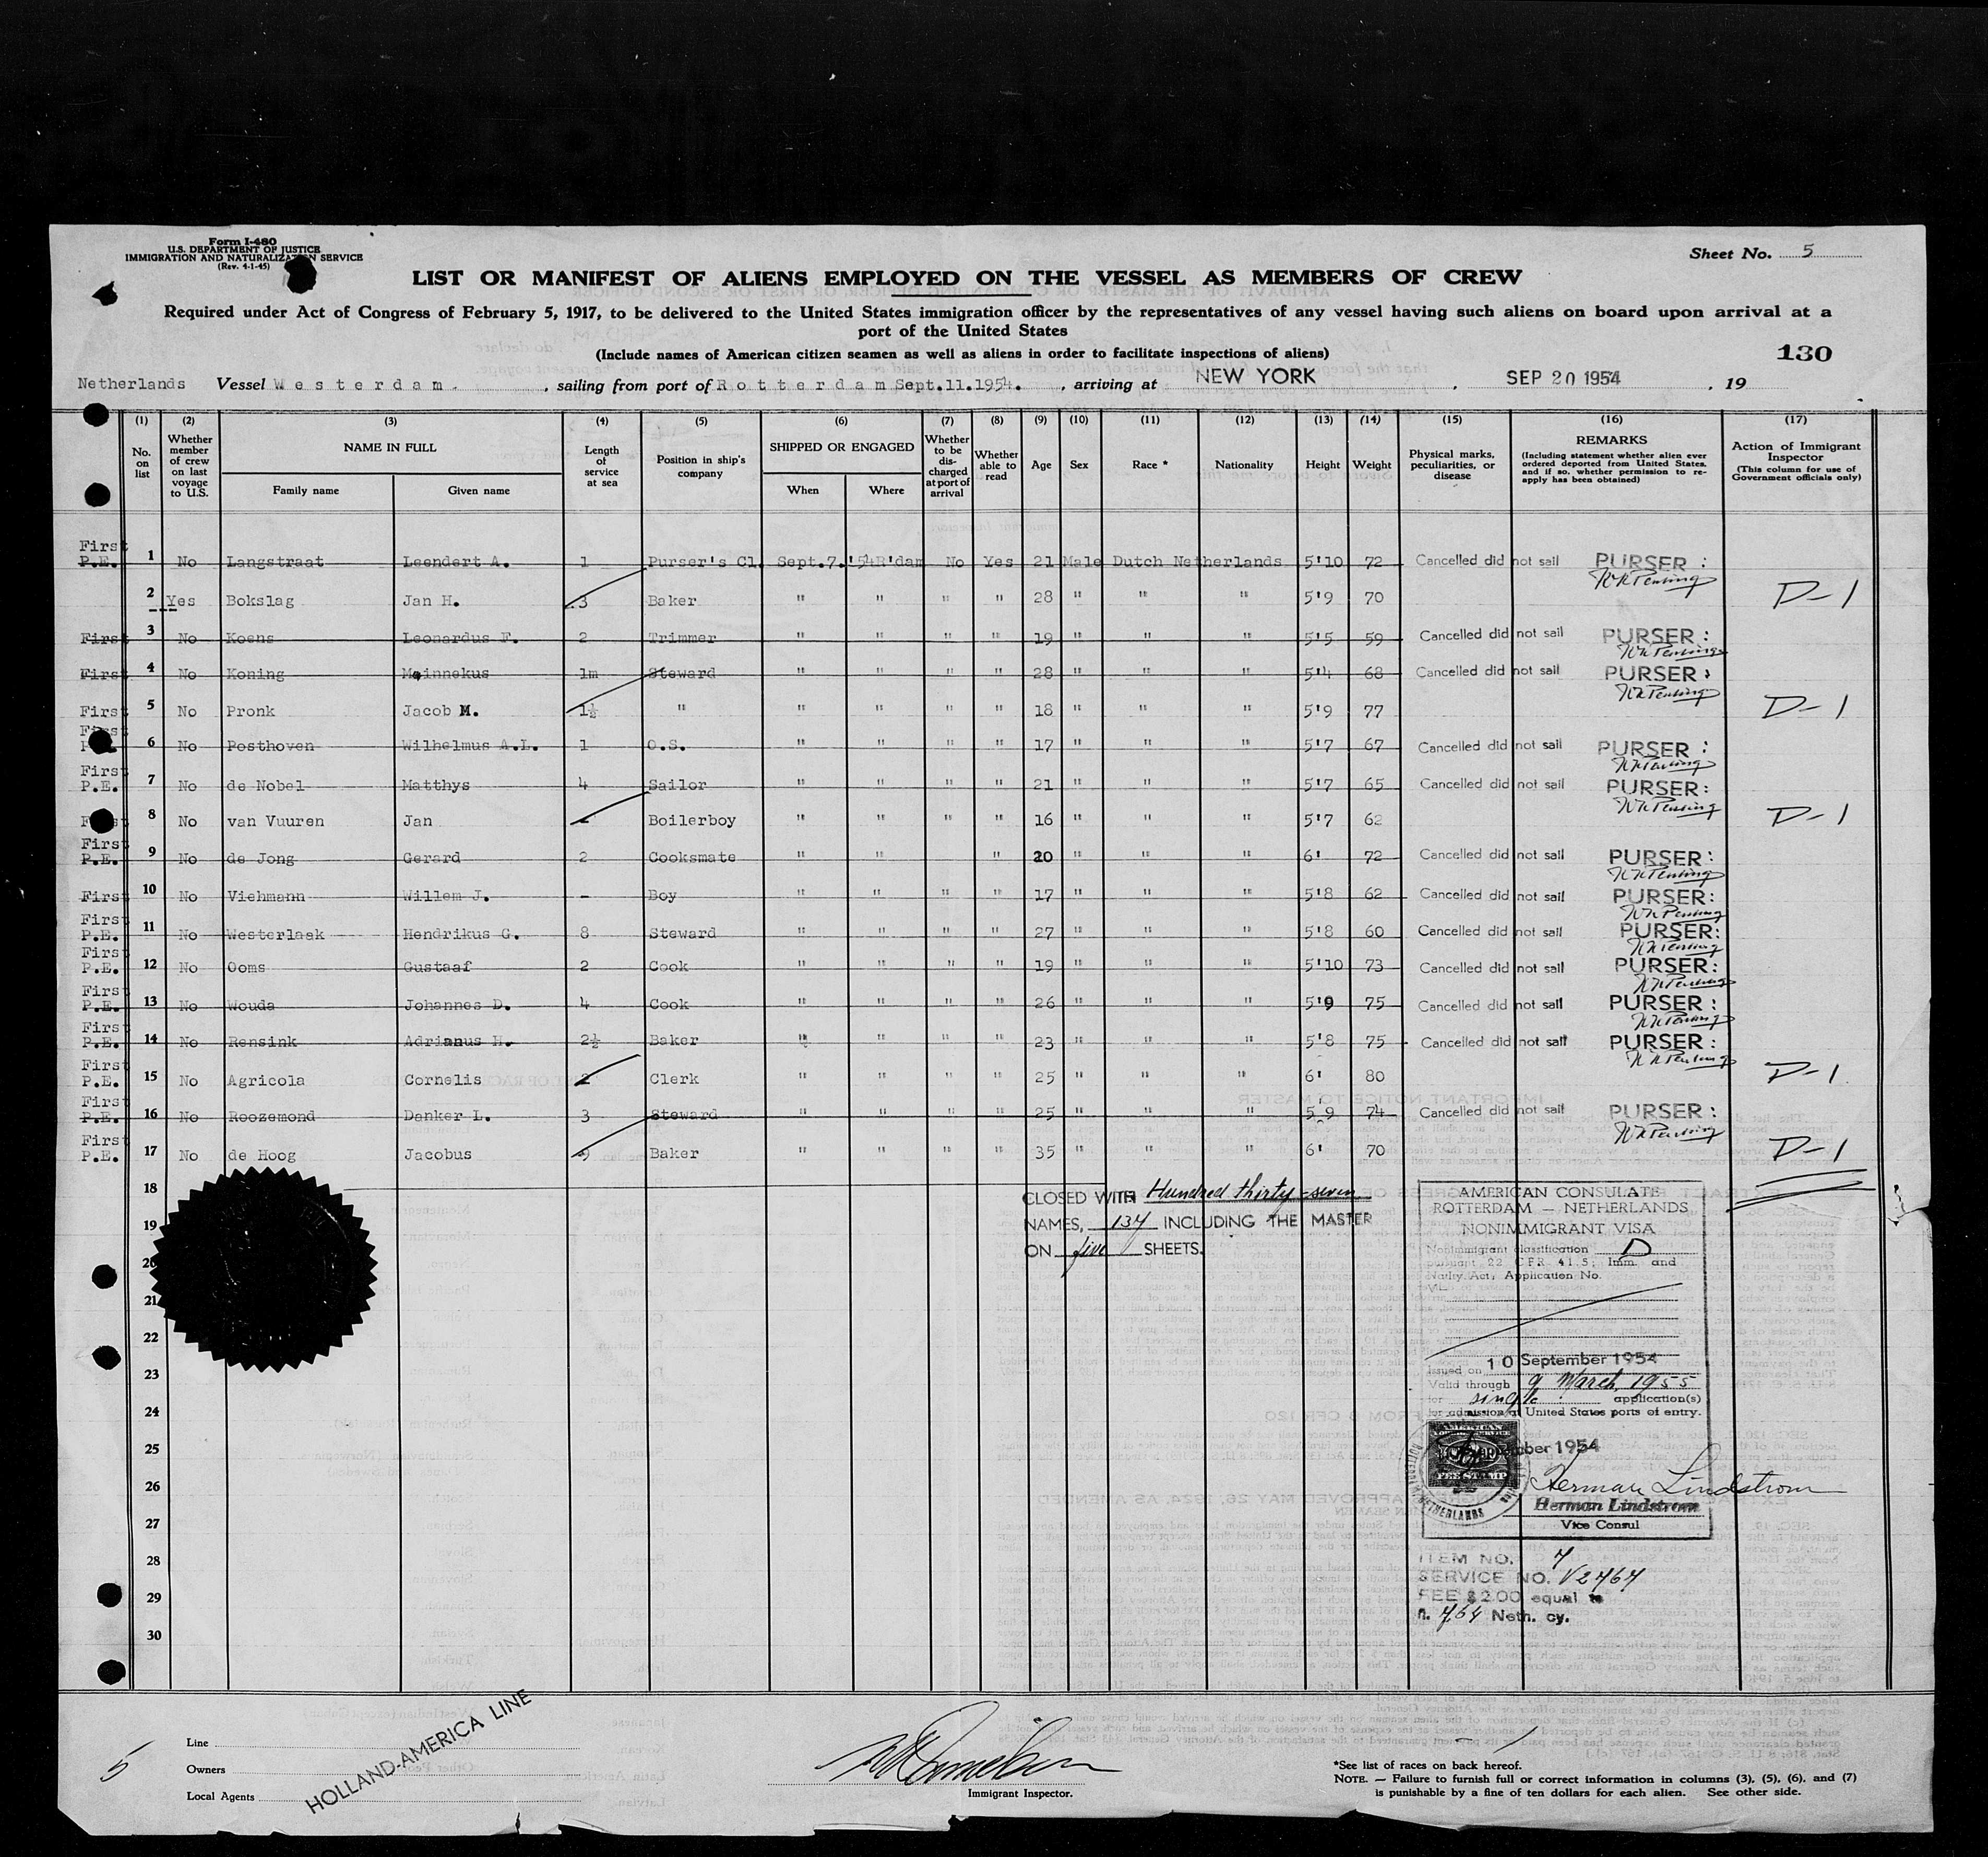 Form I-480
U.S. DEPARTMENT OF JUSTICE
IMMIGRATION AND NATURALIZATION SERVICE
(Rev. 4-1-45)
Sheet No. 5
LIST OR MANIFEST OF ALIENS EMPLOYED ON THE VESSEL AS MEMBERS OF CREW
Required under Act of Congress of February 5, 1917, to be delivered to the United States immigration officer by the representatives of any vessel having such aliens on board upon arrival at a
port of the United States
(Include names of American citizen seamen as well as aliens in order to facilitate inspections of aliens)
130
Netherlands Vessel Westerdam. , sailing from port of Rotterdam Sept.11.1954. , arriving at NEW YORK , SEP 20 1954 , 19
(1) (2) (3) (4) (5) (6) (7) (8) (9) (10) (11) (12) (13) (14) (15) (16) (17)
No. on list
Whether member of crew on last voyage to U.S.
NAME IN FULL
Family name Given name
Length of service at sea
Position in ship's company
SHIPPED OR ENGAGED
When Where
Whether to be discharged at port of arrival
Whether able to read
Age
Sex
Race *
Nationality
Height
Weight
Physical marks, peculiarities, or disease
REMARKS
(Including statement whether alien ever ordered deported from United States, and if so, whether permission to re-apply has been obtained)
Action of Immigrant Inspector
(This column for use of Government officials only)
First P.E. 1 No Langstraat Leendert A. 1 Purser's Cl. Sept.7.'54 R'dam No Yes 21 Male Dutch Netherlands 5'10 72 Cancelled did not sail PURSER :
2 Yes Bokslag Jan H. 3 Baker " " " " 28 " " " 5'9 70 D-1
First 3 No Koens Leonardus F. 2 Trimmer " " " " 19 " " " 5'5 59 Cancelled did not sail PURSER :
First 4 No Koning Meinnekus 1m Steward " " " " 28 " " " 5'4 68 Cancelled did not sail PURSER :
First 5 No Pronk Jacob M. 1½ " " " " " 18 " " " 5'9 77 D-1
First 6 No Posthoven Wilhelmus A.L. 1 O.S. " " " " 17 " " " 5'7 67 Cancelled did not sail PURSER :
First P.E. 7 No de Nobel Matthys 4 Sailor " " " " 21 " " " 5'7 65 Cancelled did not sail PURSER :
First 8 No van Vuuren Jan - Boilerboy " " " " 16 " " " 5'7 62 D-1
First P.E. 9 No de Jong Gerard 2 Cooksmate " " " 20 " " " 6' 72 Cancelled did not sail PURSER :
First 10 No Viehmann Willem J. - Boy " " " " 17 " " " 5'8 62 Cancelled did not sail PURSER :
First P.E. 11 No Westerlaak Hendrikus G. 8 Steward " " " " 27 " " " 5'8 60 Cancelled did not sail PURSER :
First P.E. 12 No Ooms Gustaaf 2 Cook " " " " 19 " " " 5'10 73 Cancelled did not sail PURSER :
First P.E. 13 No Wouda Johannes D. 4 Cook " " " " 26 " " " 5'9 75 Cancelled did not sail PURSER :
First P.E. 14 No Rensink Adrianus H. 2½ Baker " " " " 23 " " " 5'8 75 Cancelled did not sail PURSER :
First P.E. 15 No Agricola Cornelis 2 Clerk " " " " 25 " " " 6' 80 D-1
First P.E. 16 No Roozemond Danker L. 3 Steward " " " " 25 " " " 5'9 74 Cancelled did not sail PURSER :
First P.E. 17 No de Hoog Jacobus 9 Baker " " " " 35 " " " 6' 70 D-1
18
19
20
21
22
23
24
25
26
27
28
29
30
CLOSED WITH Hundred thirty-seven
NAMES, 137 INCLUDING THE MASTER
ON five SHEETS.
AMERICAN CONSULATE
ROTTERDAM — NETHERLANDS
NONIMMIGRANT VISA
Nonimmigrant classification D
pursuant 22 CFR 41.5; Imm. and
Natlty. Act; Application No.
Issued on 10 September 1954
Valid through 9 March, 1955
for single application(s)
for admission at United States ports of entry.
AMERICAN
FEE STAMP
NETHERLANDS
September 1954
Herman Lindstrom
Herman Lindstrom
Vice Consul
ITEM NO. 7
SERVICE NO. V2767
FEE $2.00 equal to
fl. 7.64 Neth. cy.
Line
Owners
Local Agents
HOLLAND-AMERICA LINE
5
Immigrant Inspector.
*See list of races on back hereof.
NOTE. — Failure to furnish full or correct information in columns (3), (5), (6), and (7)
is punishable by a fine of ten dollars for each alien. See other side.